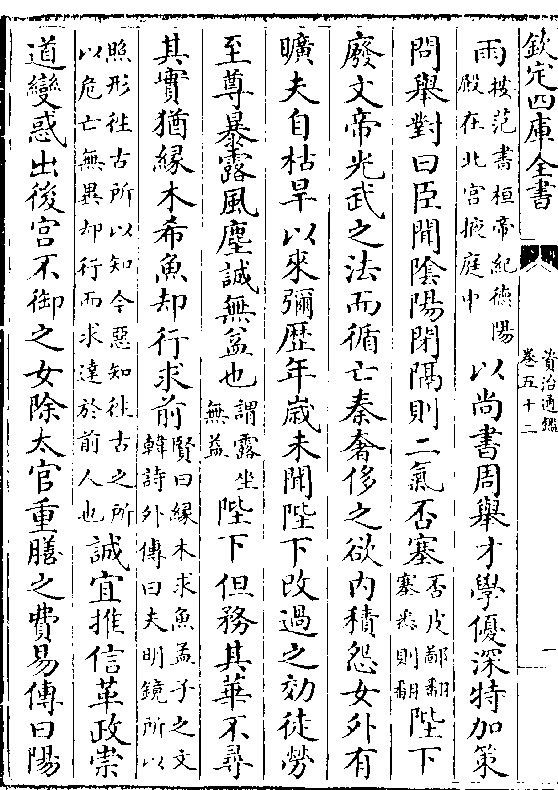 欽定四庫全書
資治通鑑
卷五十二
一
雨
按范書桓帝紀德陽
殿在北宮掖庭中
以尚書周舉才學優深特加策
問舉對曰臣聞陰陽閉隔則二氣否塞
否皮鄙翻
塞悉則翻
陛下
廢文帝光武之法而循亡秦奢侈之欲内積怨女外有
曠夫自枯旱以來彌歴年歲未聞陛下改過之効徒勞
至尊暴露風塵誠無益也
謂露坐
無益
陛下但務其華不尋
其實猶緣木希魚却行求前
賢曰緣木求魚孟子之文
韓詩外傳曰夫明鏡所以
照形往古所以知今惡知往古之所
以危亡無異却行而求達於前人也
誠宜推信革政崇
道變惑出後宮不御之女除太官重膳之費易傳曰陽